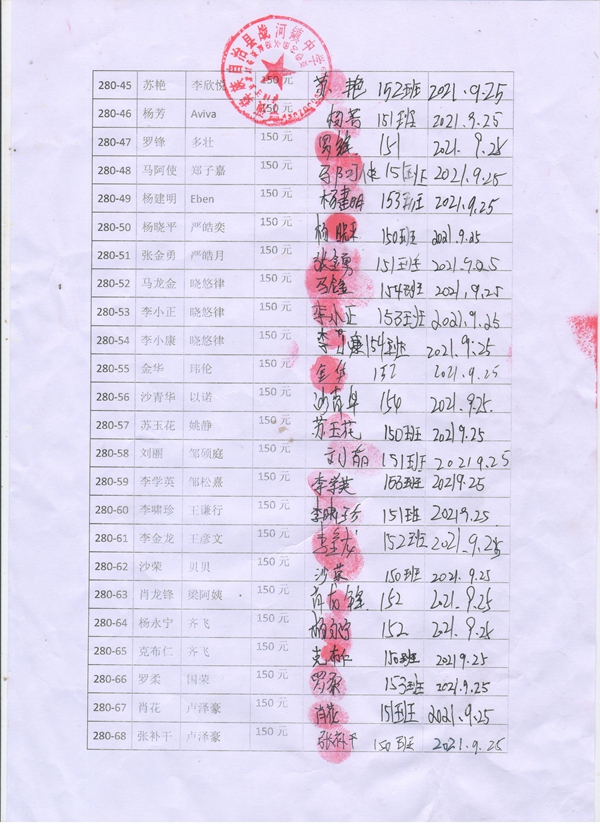 自治县战河镇中学校
280-45 苏艳 李欣悦 150元 苏艳 152班 2021.9.25
280-46 杨芳 Aviva 150元 杨芳 151班 2021.9.25
280-47 罗锋 多壮 150元 罗锋 151 2021.9.25
280-48 马阿使 郑子嘉 150元 马阿使 151班 2021.9.25
280-49 杨建明 Eben 150元 杨建明 153班 2021.9.25
280-50 杨晓平 严皓奕 150元 杨晓平 150班 2021.9.25
280-51 张金勇 严皓月 150元 张金勇 151班 2021.9.25
280-52 马龙金 晓悠律 150元 马金 154班 2021.9.25
280-53 李小正 晓悠律 150元 李小正 153班 2021.9.25
280-54 李小康 晓悠律 150元 李小康 154班 2021.9.25
280-55 金华 玮伦 150元 金华 152 2021.9.25
280-56 沙青华 以诺 150元 沙青华 154 2021.9.25.
280-57 苏玉花 姚静 150元 苏玉花 150班 2021.9.25
280-58 刘丽 邹硕庭 150元 刘丽 151班 2021 9.25
280-59 李学英 邹松熹 150元 李学英 153班 2021 9.25
280-60 李啸珍 王谦行 150元 李啸珍 151班 2021 9.25.
280-61 李金龙 王彦文 150元 李金龙 152班 2021.9.25
280-62 沙荣 贝贝 150元 沙荣 150班 2021.9.25
280-63 肖龙锋 梁阿姨 150元 肖龙锋 152 2021.9.25
280-64 杨永宁 齐飞 150元 杨永宁 152 2021.9.25
280-65 克布仁 齐飞 150元 克布仁 150班 2021 9.25
280-66 罗柔 国荣 150元 罗柔 153班 2021.9.25
280-67 肖花 卢泽豪 150元 肖花 151班 2021.9.25
280-68 张补干 卢泽豪 150元 张补干 150班 2021.9.25